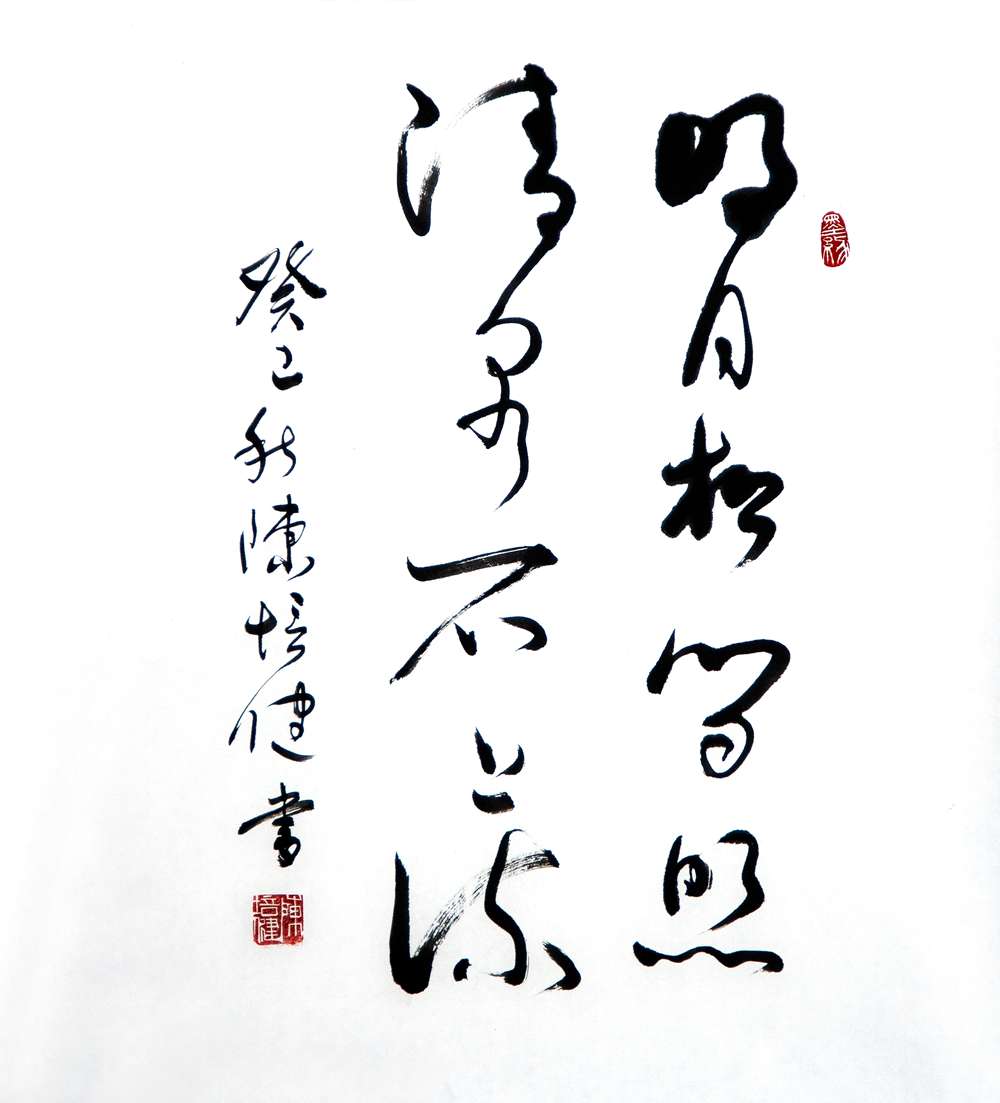 明月松间照
清泉石上流
癸巳秋陳培健書
陳培健